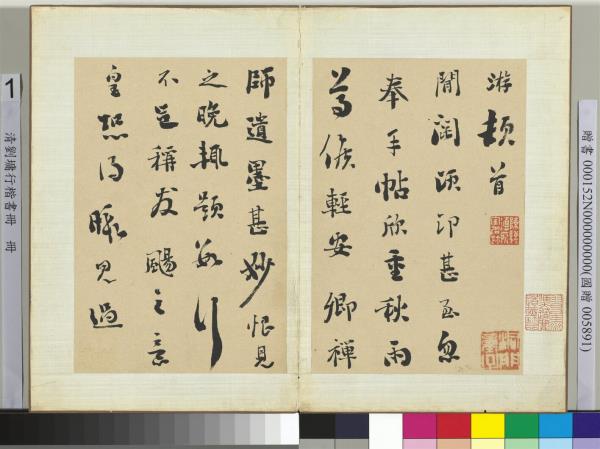 游頓首
閒闊傾卬甚至忽
奉手帖欣重秋雨
尊候輕安卿禪
師遺墨甚妙恨見
之晚輒題數行
不足稱發颺之意
皇恐得暇見過
1
清劉墉行楷書冊 冊
贈書 000152N000000000(國贈 005891)